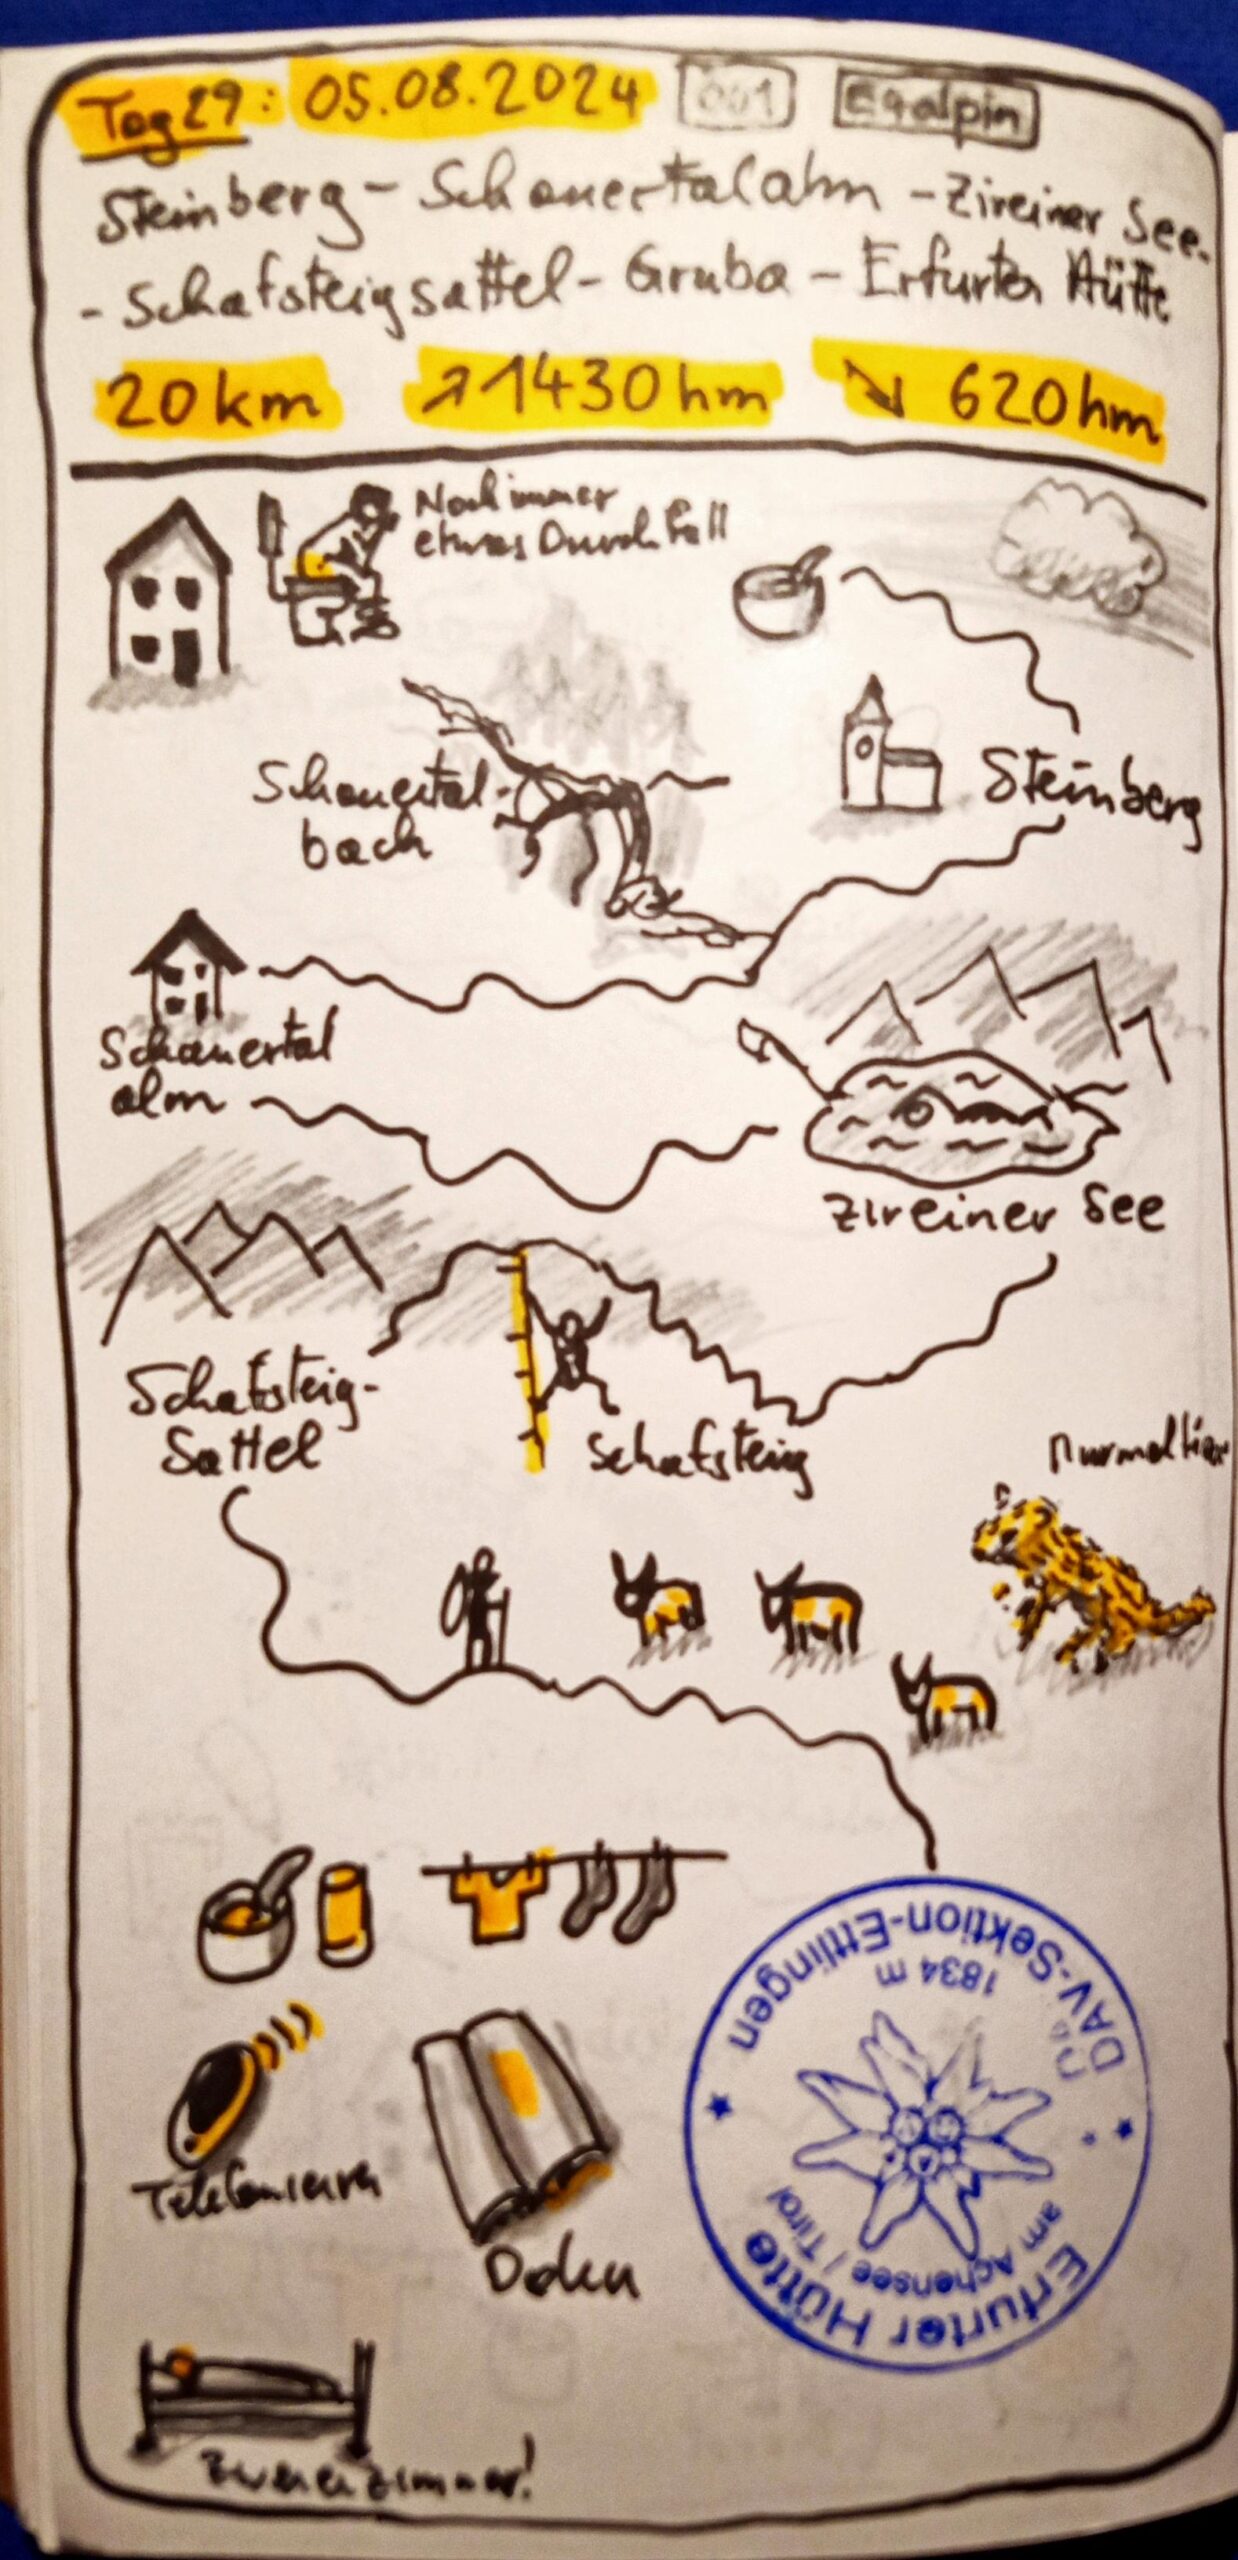 Tag 29: 05.08.2024 001 E4alpin
Steinberg - Schauertalalm - Zireiner See -
- Schafsteigsattel - Gruba - Erfurter Hütte
20 km ↗ 1430 hm ↘ 620 hm
Noch immer
etwas Durchfall
Schauertal-
bach
Steinberg
Schauertal
alm
Zireiner See
Schafsteig-
Sattel
Schafsteig
Murmeltier
Telefonieren
Doku
Zweierzimmer!
Erfurter Hütte
am Achensee / Tirol
1834 m
DAV-Sektion-Ettlingen